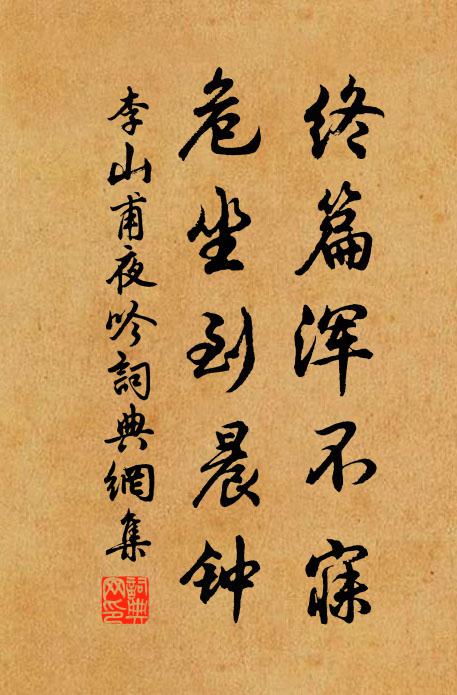 终篇浑不寐
危坐到晨钟
李山甫夜吟詞典網集
詞典网印